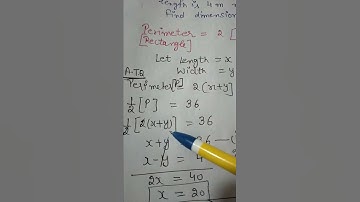 length is 4 m
find dimension
Perimeter = 2 [
[Rectangle]
Let length = x
A.TQ Width = y
Perimeter [P] = 2(x+y]
1/2 [P] = 36
1/2 [2(x+y)] = 36
x+y 36 —(
x-y = 4
2x = 40
x = 20